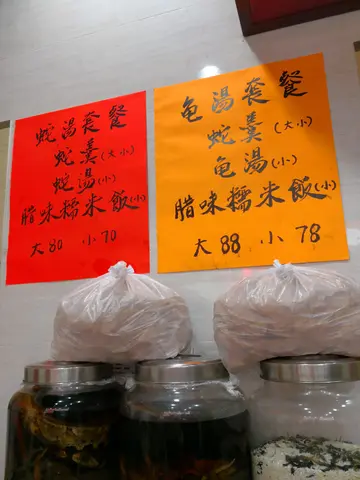 蛇湯套餐
蛇羹(大小)
蛇湯(小)
腊味糯米飯(小)
大80 小70
龟湯套餐
蛇羹(大小)
龟湯(小)
腊味糯米飯(小)
大88 小78